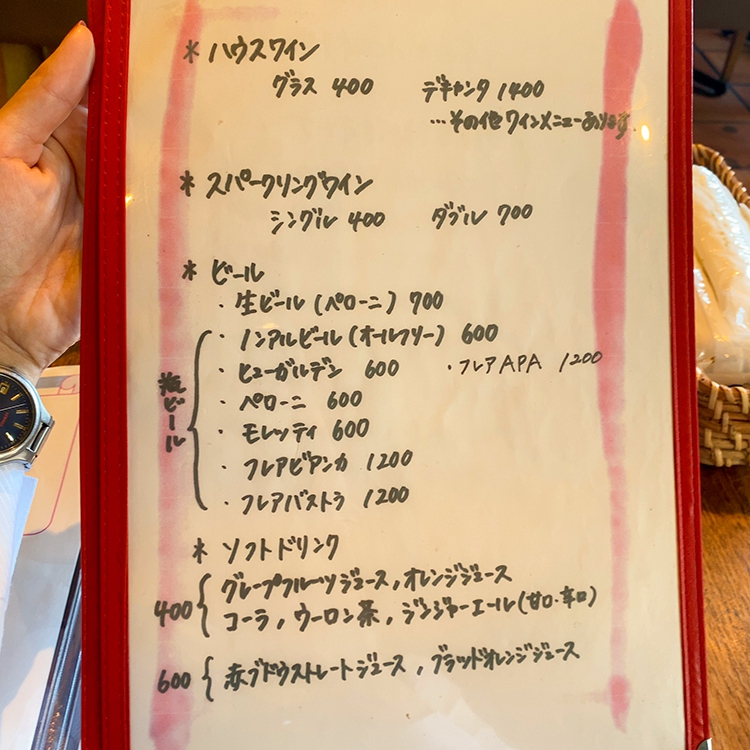 * ハウスワイン
グラス 400 デキャンタ 1400
…その他ワインメニューあります
* スパークリングワイン
シングル 400 ダブル 700
* ビール
・生ビール(ペローニ) 700
・ノンアルビール(オールフリー) 600
・ヒューガルデン 600 ・フレアAPA 1200
・ペローニ 600
・モレッティ 600
・フレアビアンカ 1200
・フレアバストラ 1200
瓶ビール
* ソフトドリンク
グレープフルーツジュース, オレンジジュース
400 { コーラ, ウーロン茶, ジンジャーエール(甘口・辛口)
600 { 赤ブドウストレートジュース, ブラッドオレンジジュース